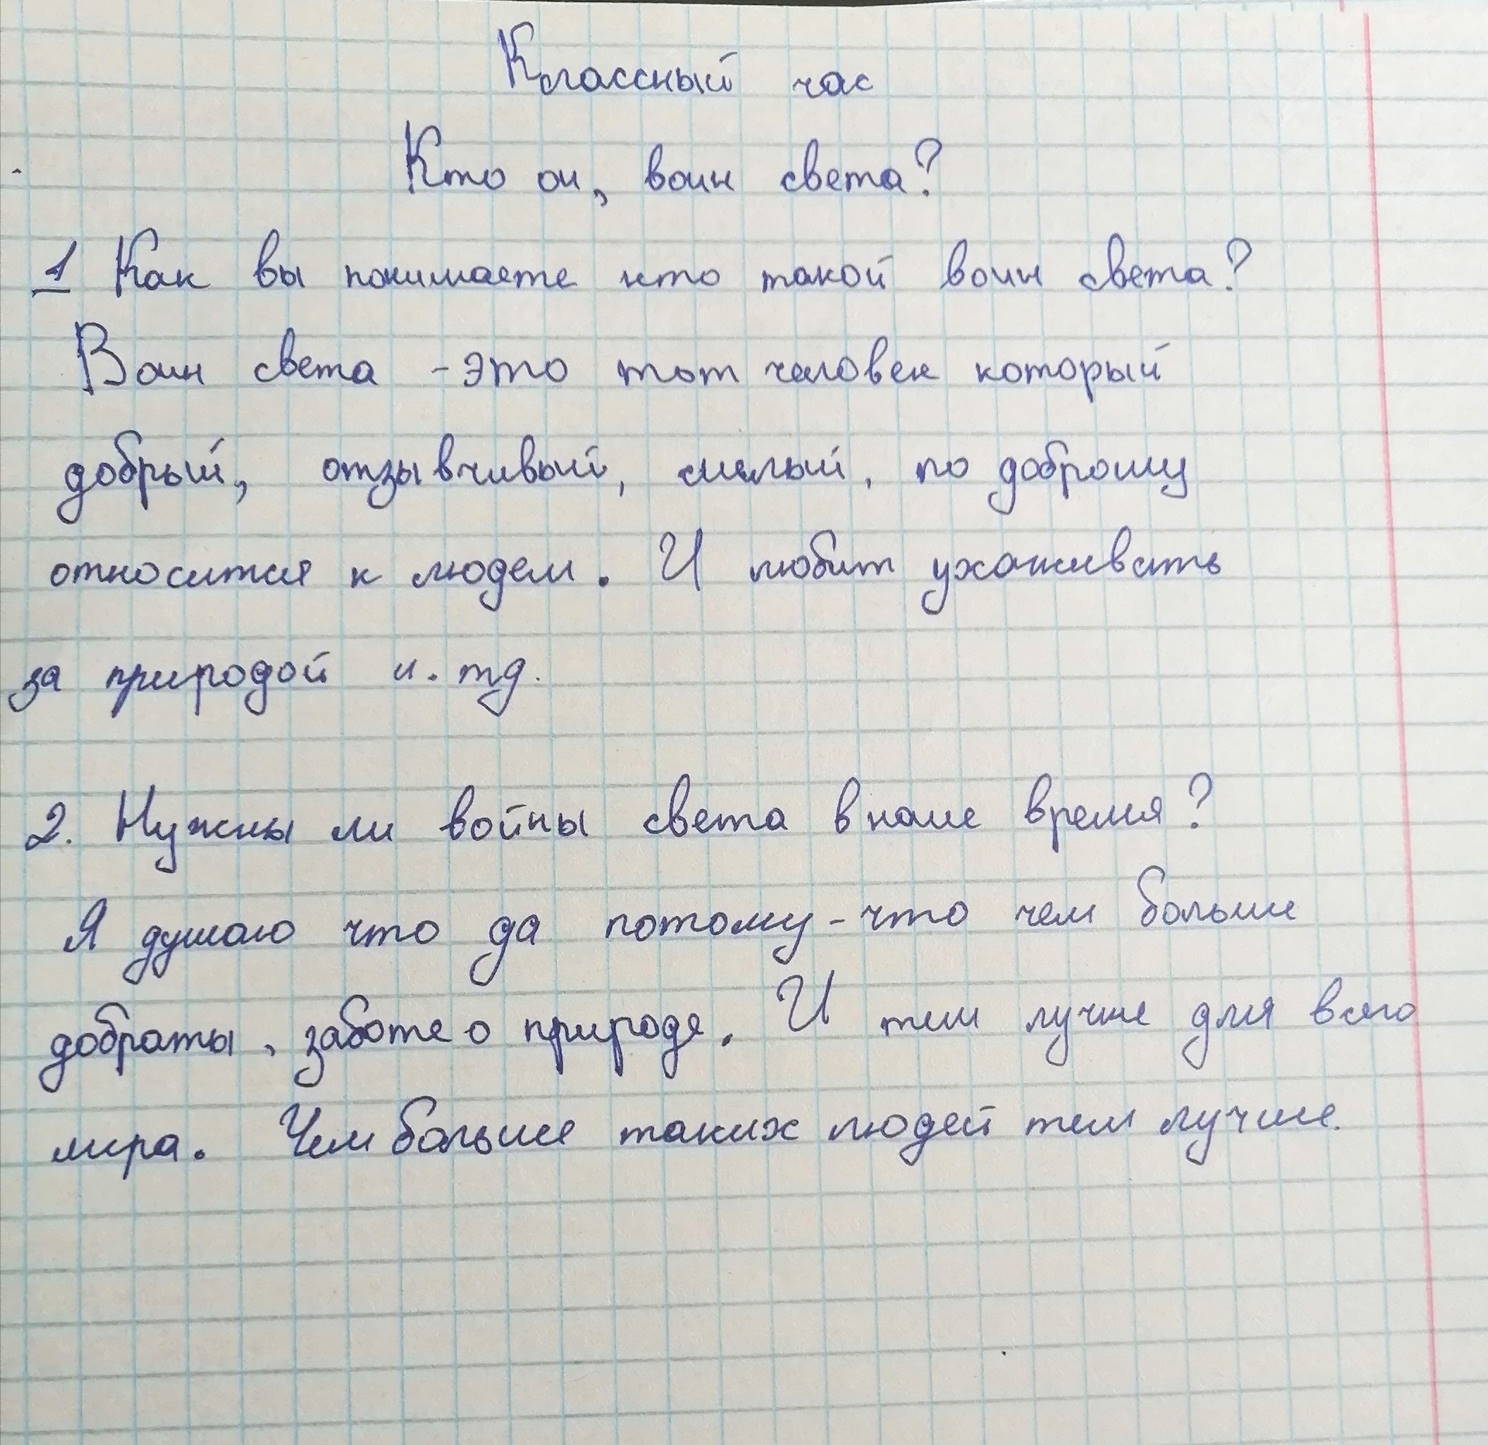 Классный час
Кто он, воин света?
1 Как вы понимаете кто такой воин света?
Воин света - это тот человек который
добрый, отзывчивый, смелый, по доброму
относится к людем. И любит ухаживать
за природой и. тд.
2. Нужны ли войны света в наше время?
Я думаю что да потому-что чем больше
доброты, заботе о природе. И тем лучше для всего
мира. Чем больше таких людей тем лучше.